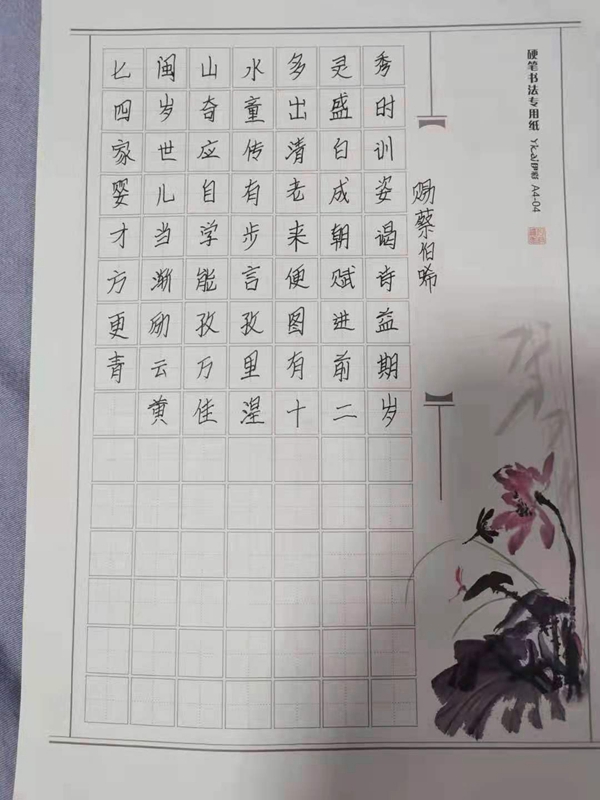 硬笔书法专用纸
A4-04
赐蔡伯唏
七闽山水多灵秀
四岁奇童出盛时
家世应传清白训
婴儿自有老成姿
才当学步来朝谒
方渐能言便赋诗
更励孜孜图进益
青云万里有前期
黄佳 十二岁